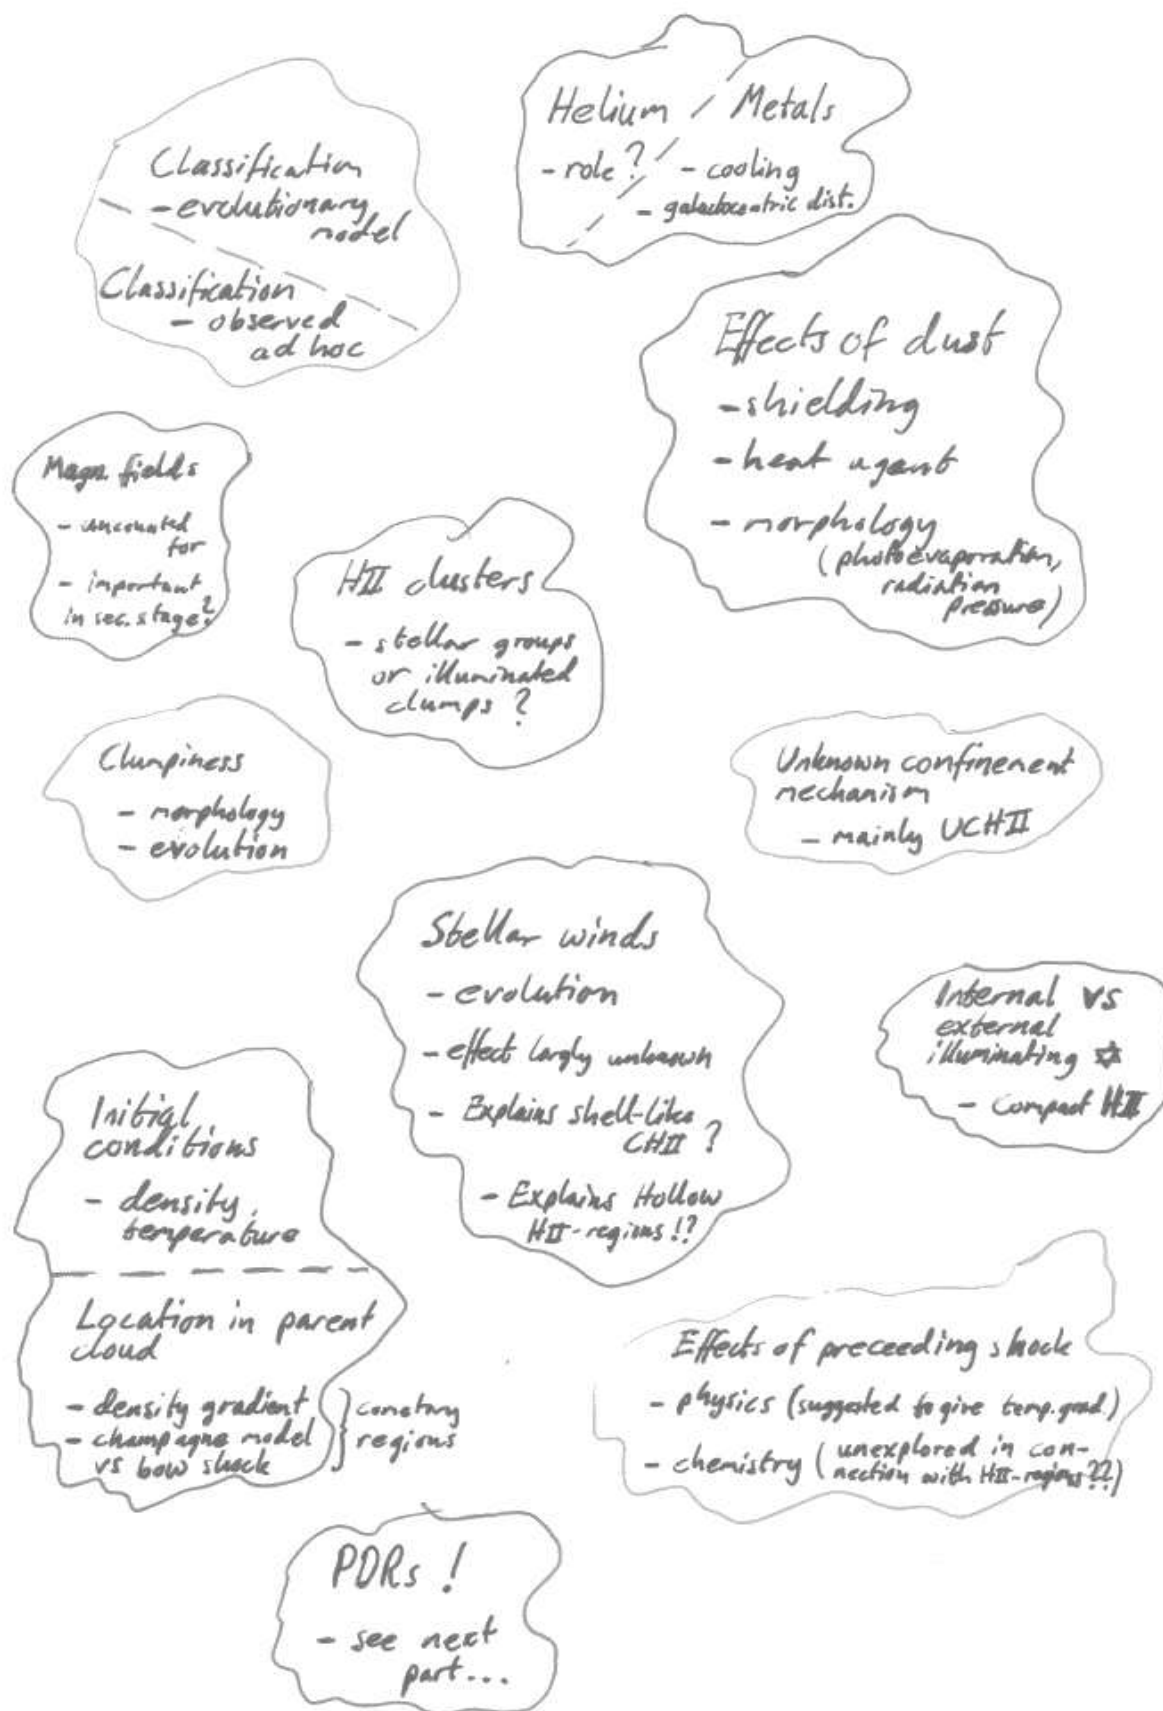 Classification
- evolutionary
model
Classification
- observed
ad hoc
Helium / Metals
- role? - cooling
- galactocentric dist.
Effects of dust
- shielding
- heat agent
- morphology
(photoevaporation,
radiation
pressure)
Magn. fields
- unconated
for
- important
in sec. stage?
HII clusters
- stellar groups
or illuminated
clumps ?
Clumpiness
- morphology
- evolution
Unknown confinement
mechanism
- mainly UCHII
Stellar winds
- evolution
- effect largly unknown
- Explains shell-like
CHII ?
- Explains Hollow
HII-regions!?
Internal vs
external
illuminating ✡
- compact HII
Initial
conditions
- density,
temperature
Location in parent
cloud
- density gradient } cometary
- champagne model } regions
vs bow shock
Effects of preceeding shock
- physics (suggested to give temp. grad.)
- chemistry (unexplored in con-
nection with HII-regions??)
PDRs !
- see next
part...